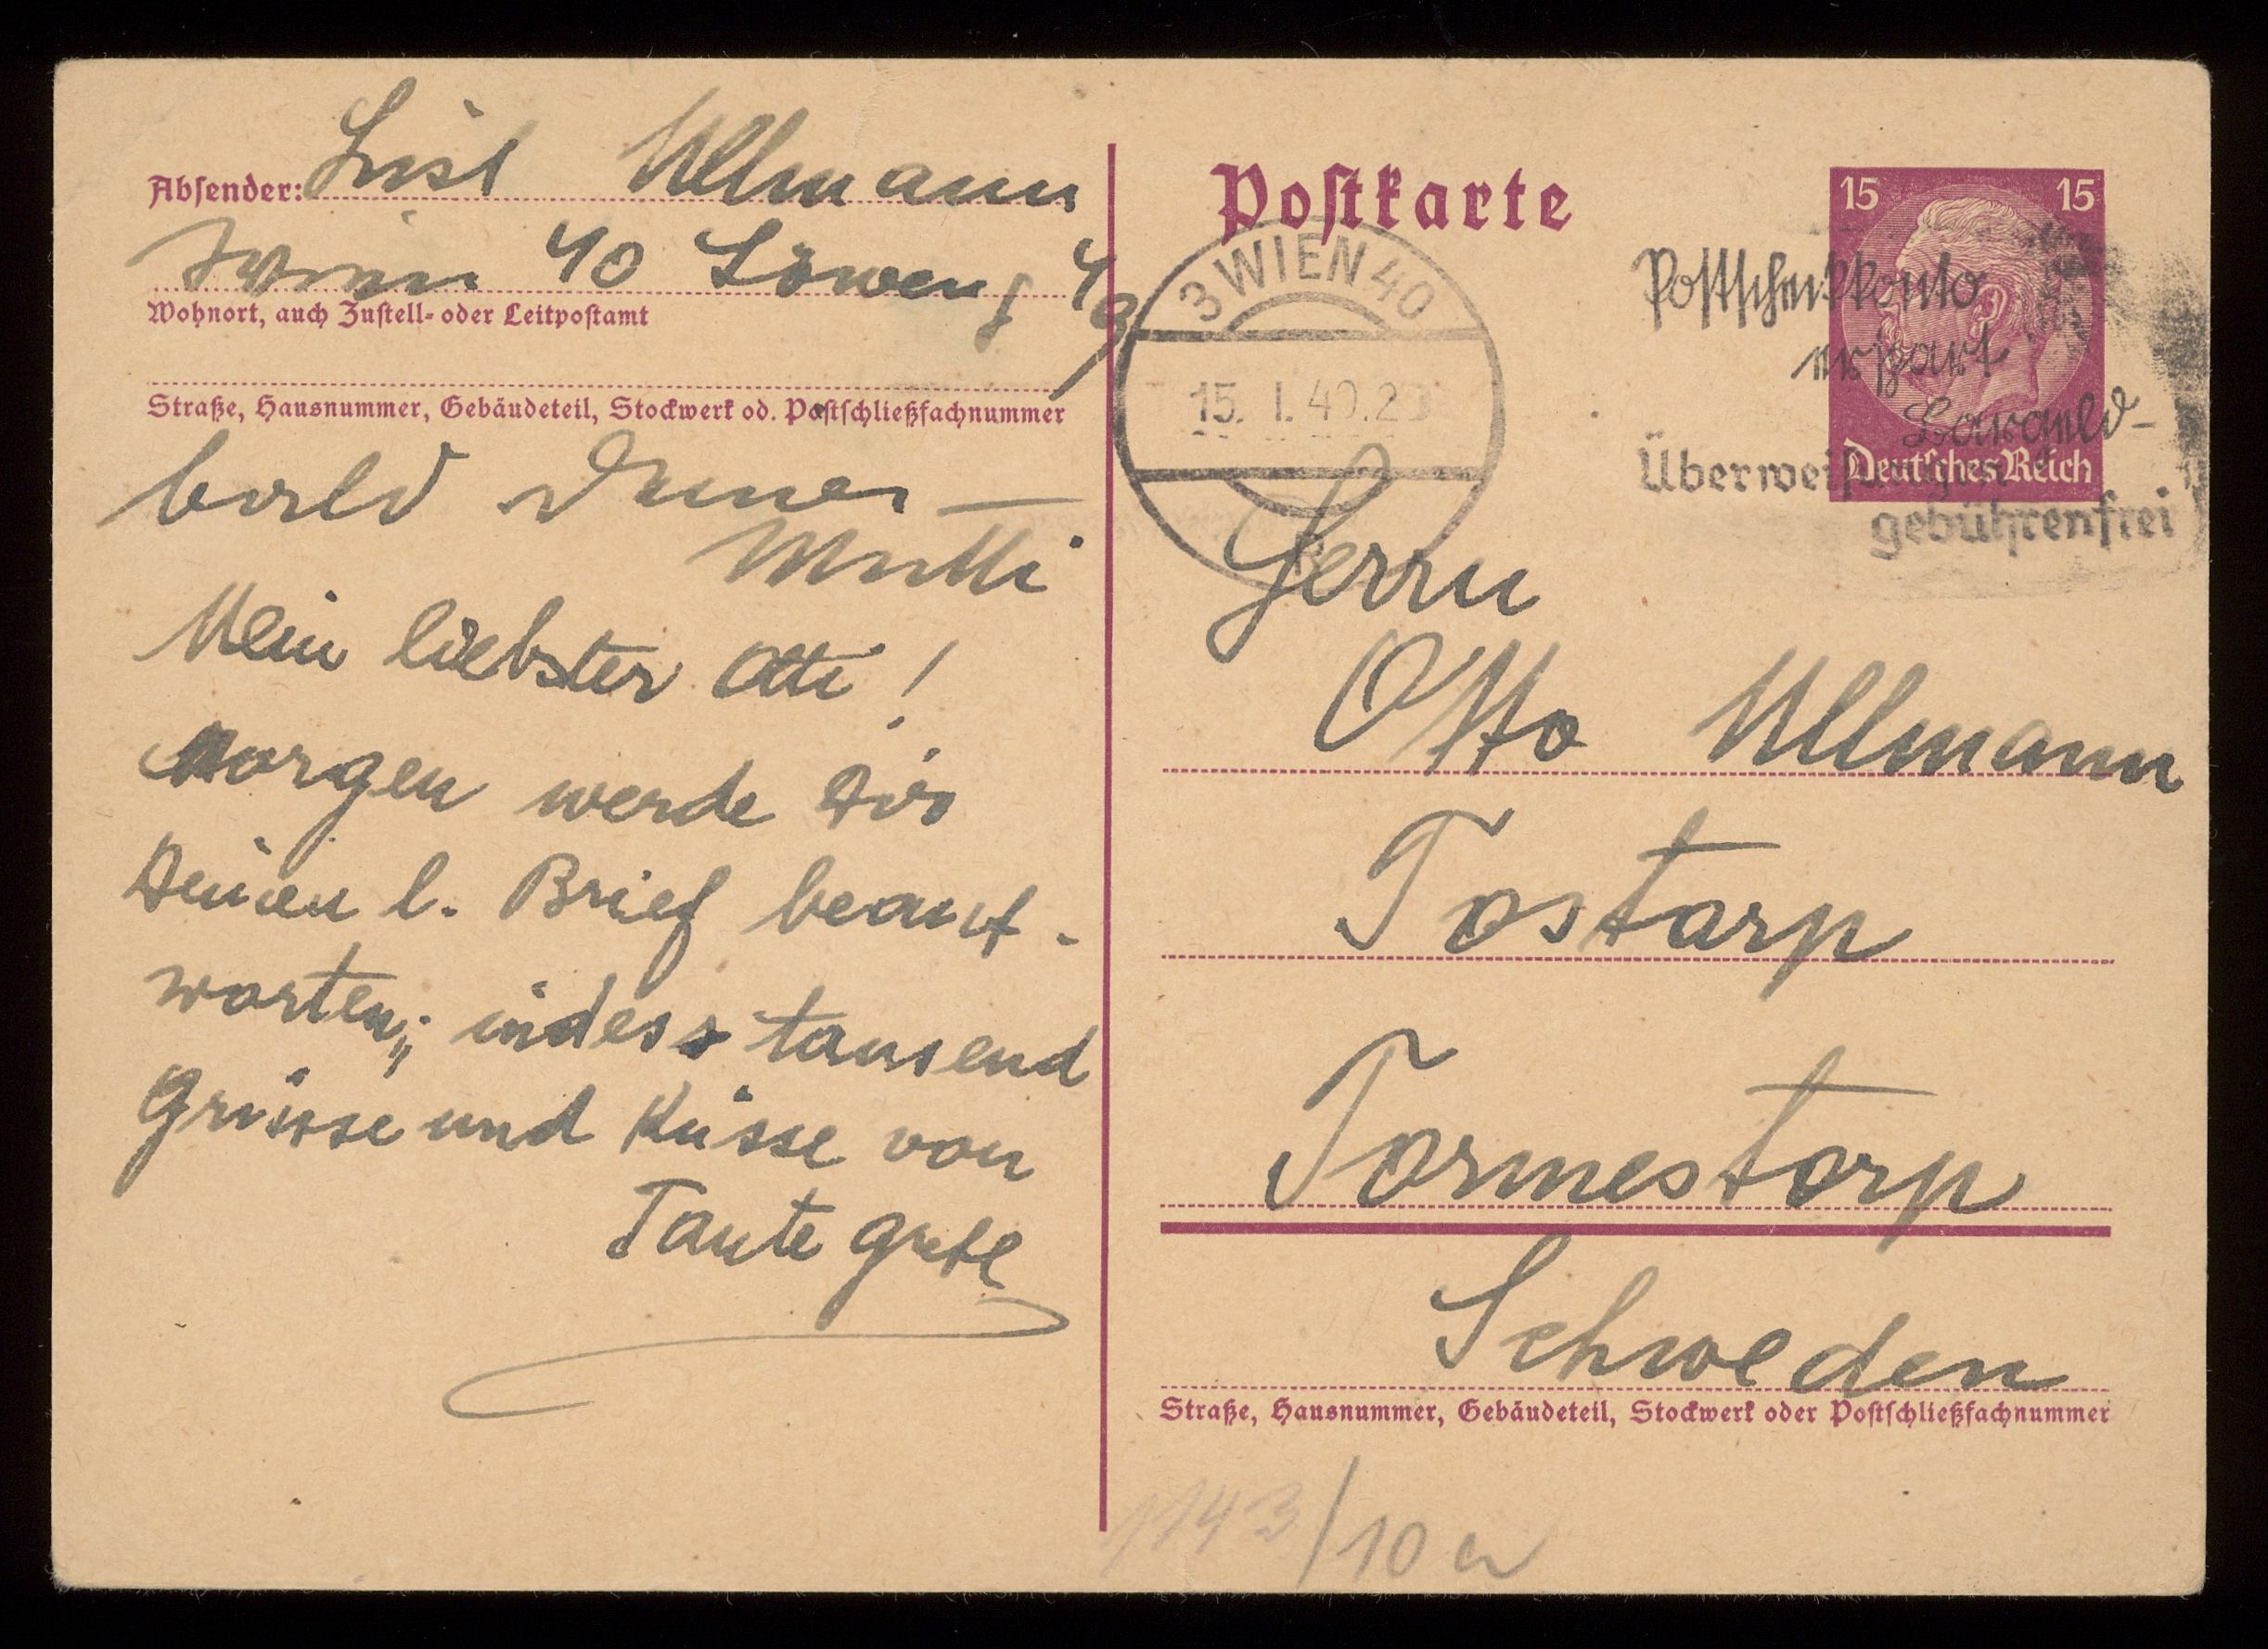 Absender: Lisl Ullmann
Wien 40 Löweng 49
Wohnort, auch Zustell- oder Leitpostamt
Straße, Hausnummer, Gebäudeteil, Stockwerk od. Postschließfachnummer
bald Deiner
Mutti
Mein liebster Otti!
Morgen werde Dir
Deinen l. Brief beant-
worten; indess tausend
Grüsse und Küsse von
Tante Grete
Postkarte
15 15
Deutsches Reich
3 WIEN 40
15. I. 40. 20
Postscheckkonto
erspart
Bargeld-
Überweisungen
gebührenfrei
Herrn
Otto Ullmann
Tostarp
Tormestorp
Schweden
Straße, Hausnummer, Gebäudeteil, Stockwerk oder Postschließfachnummer
1143/10 a